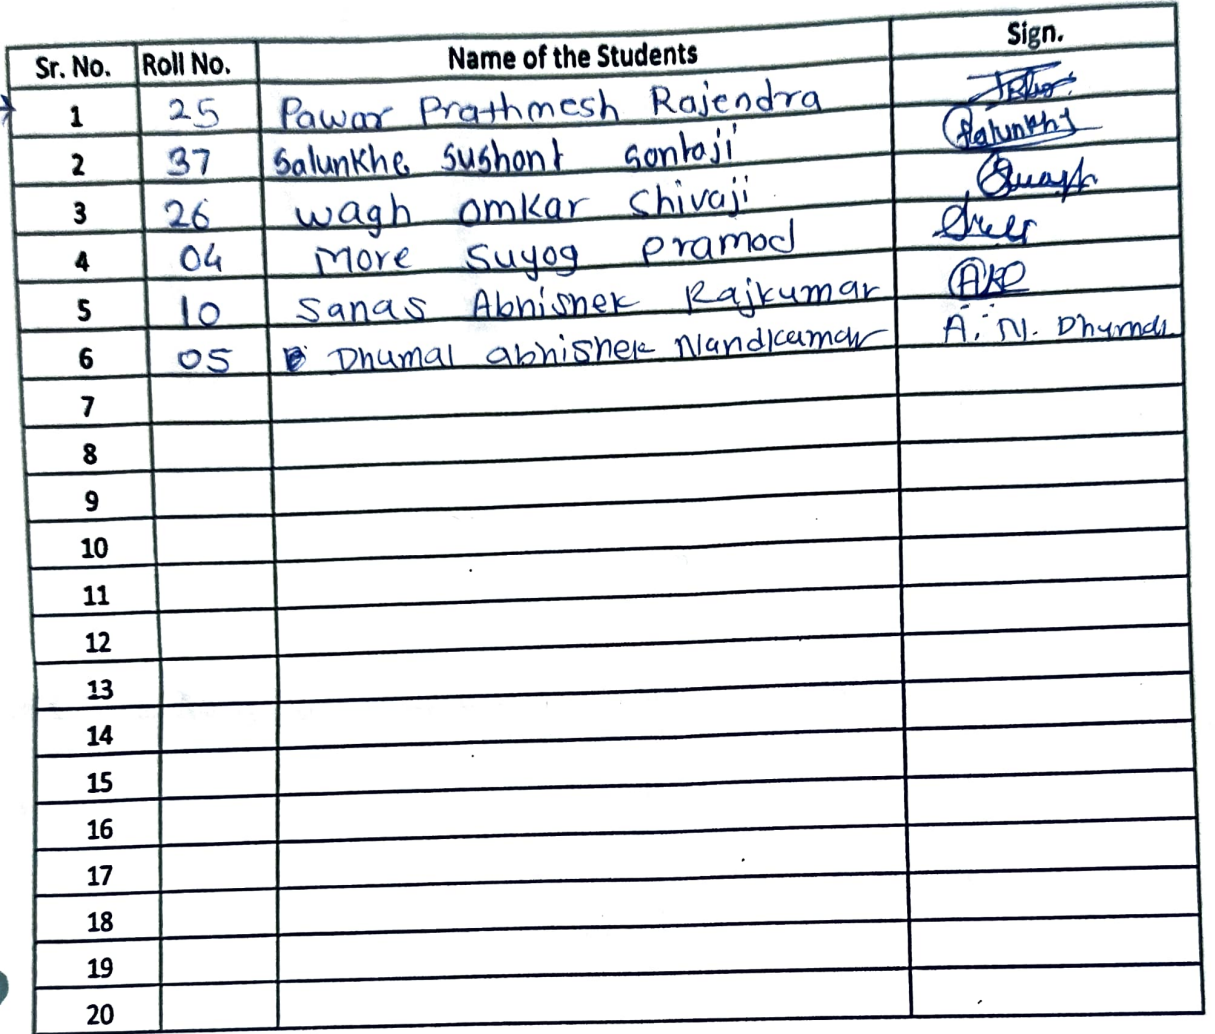 Sr. No. Roll No. Name of the Students Sign.
1 25 Pawar Prathmesh Rajendra
2 37 Salunkhe Sushant Sontaji Salunkhe
3 26 wagh omkar Shivaji
4 04 More Suyog Pramod
5 10 Sanas Abhishek Rajkumar
6 05 Dhumal abhishek Nandkumar A. N. Dhumal
7
8
9
10
11
12
13
14
15
16
17
18
19
20